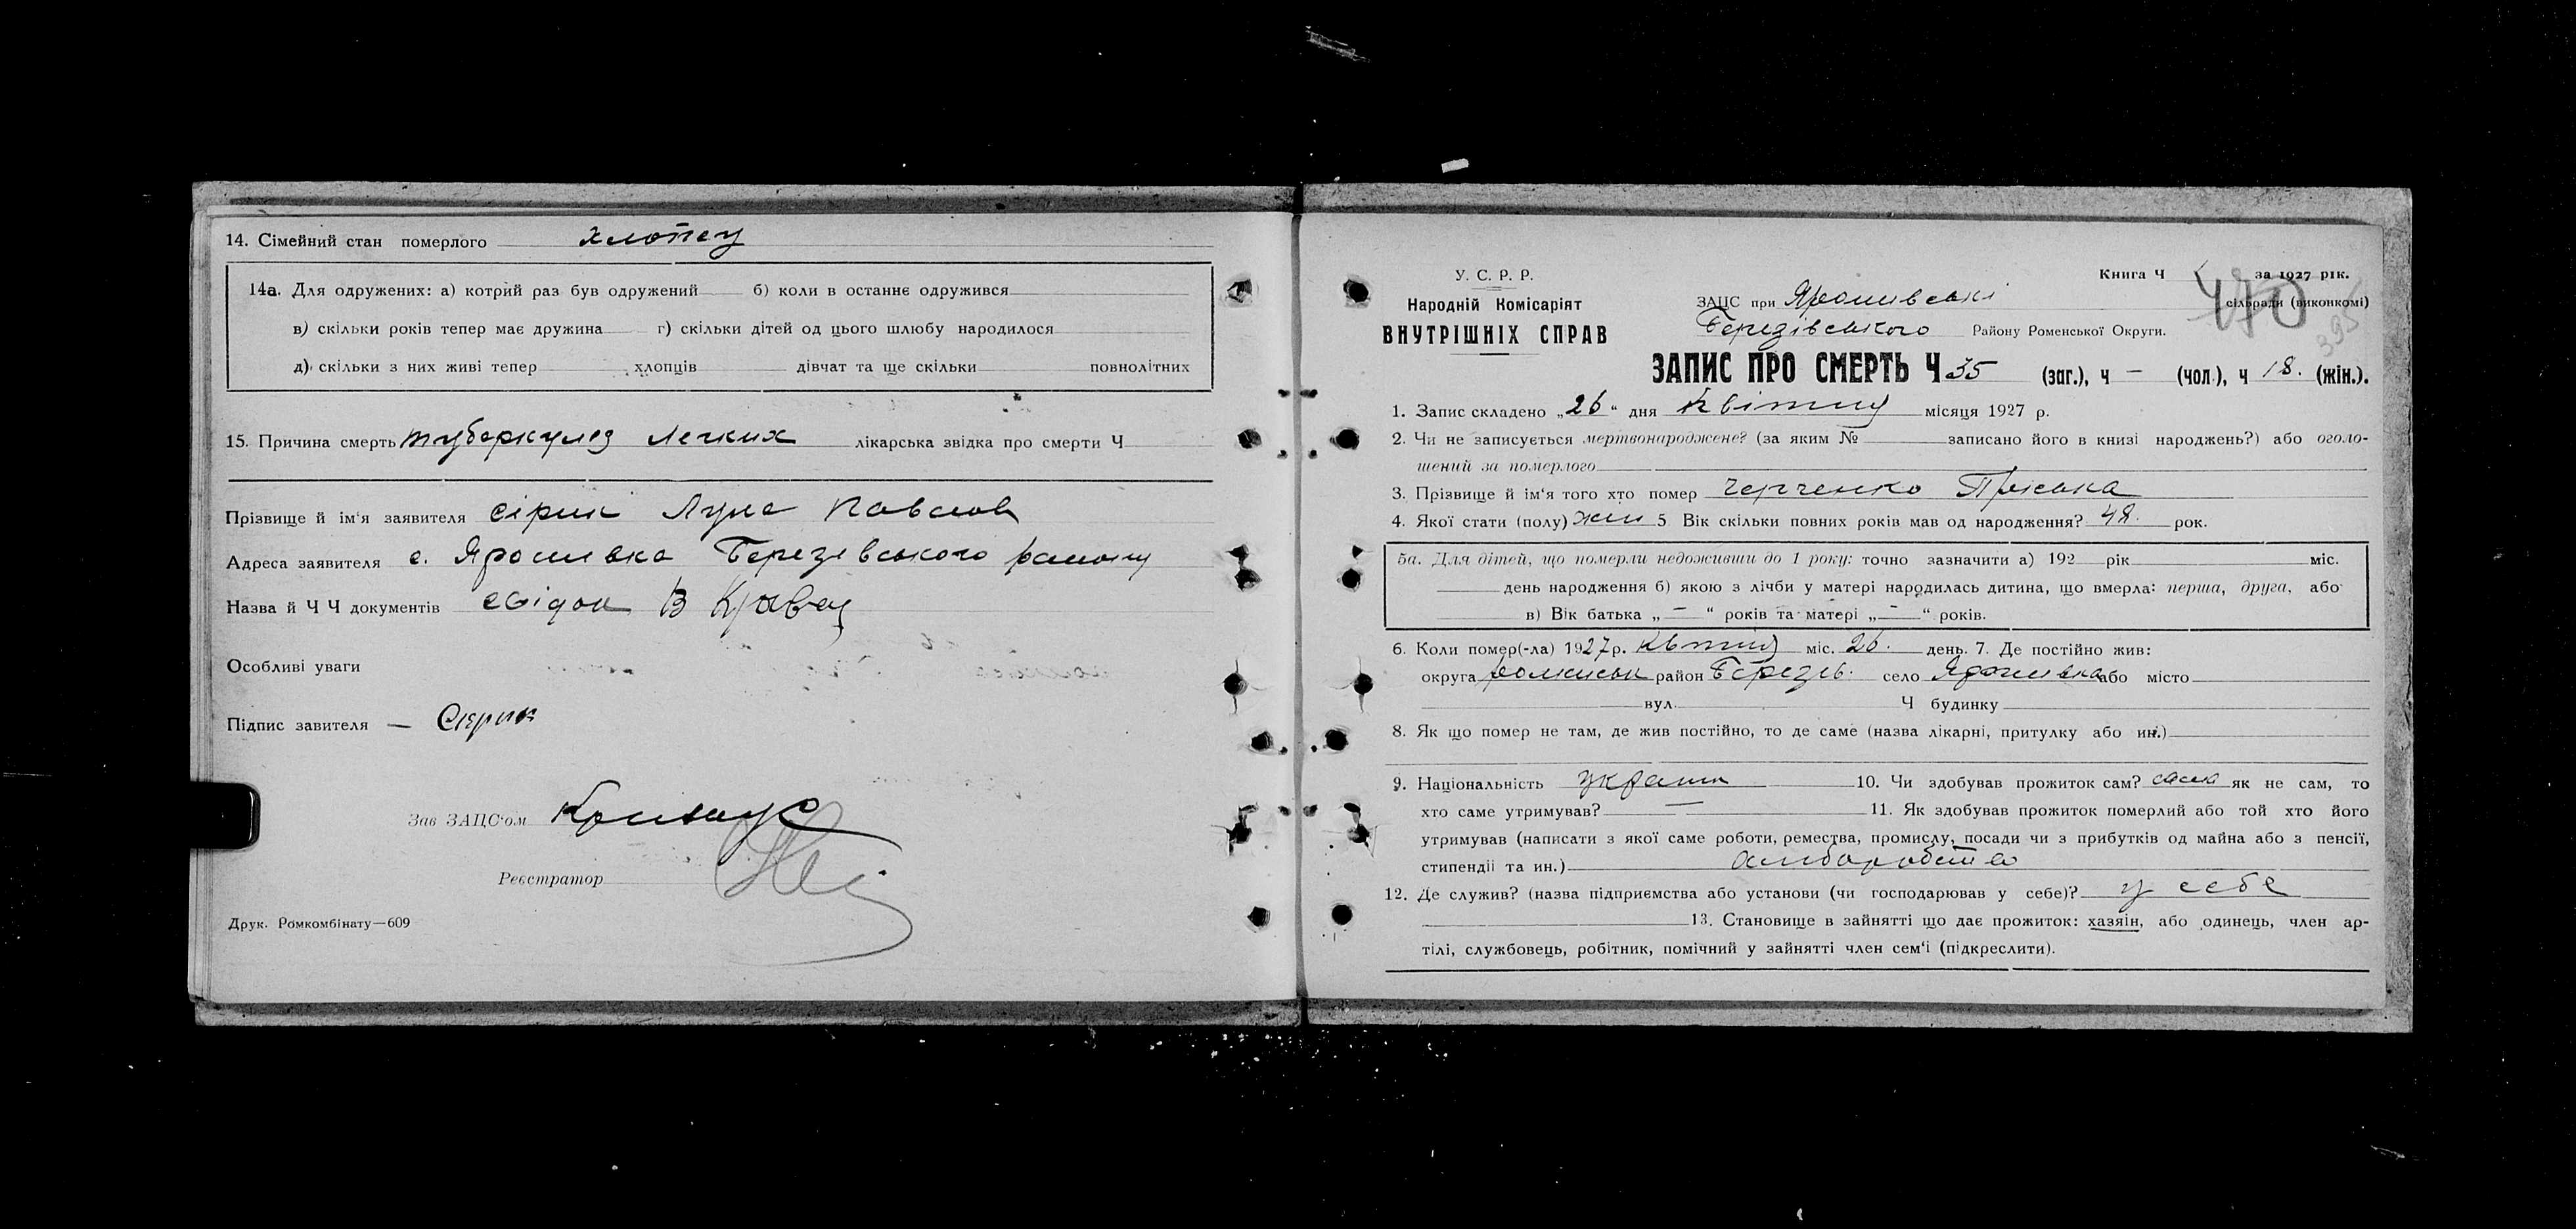 14. Сімейний стан померлого хлопец
14а. Для одружених: а) котрий раз був одружений б) коли в останнє одружився
в) скільки років тепер має дружина г) скільки дітей од цього шлюбу народилося
д) скільки з них живі тепер хлопців дівчат та ще скільки повнолітних
15. Причина смерть туберкулез Легких лікарська звідка про смерти Ч
Прізвище й ім'я заявителя Сірик Лука Павлов
Адреса заявителя с. Ярошивка Березівського району
Назва й Ч Ч документів свідок В Кривец
Особливі уваги
Підпис завителя —
Зав ЗАЦС'ом
Реєстратор
Друк. Ромкомбінату—609
У. С. Р. Р.
Народній Комісаріят
ВНУТРІШНІХ СПРАВ
Книга Ч за 1927 рік.
470
395
ЗАЦС при Ярошивські сільради (виконкомі)
Березівського Району Роменської Округи.
ЗАПИС ПРО СМЕРТЬ Ч 35 (заг.), ч — (чол.), ч 18. (жін.).
1. Запис складено „26" дня Квітня місяця 1927 р.
2. Чи не записується мертвонароджене? (за яким № записано його в книзі народжень?) або оголо-
шений за померлого
3. Прізвище й ім'я того хто помер Черченко Пріська
4. Якої стати (полу) жін 5 Вік скільки повних років мав од народження? 48. рок.
5а. Для дітей, що померли недоживши до 1 року: точно зазначити а) 192 рік міс.
день народження б) якою з лічби у матері народилась дитина, що вмерла: перша, друга, або
в) Вік батька „—" років та матері „—" років.
6. Коли помер(-ла) 1927р. квітня міс. 26. день. 7. Де постійно жив:
округа роменськ район Березів. село Ярошивка або місто
вул. Ч будинку
8. Як що помер не там, де жив постійно, то де саме (назва лікарні, притулку або ин.)
9. Національність україн 10. Чи здобував прожиток сам? сама як не сам, то
хто саме утримував? — 11. Як здобував прожиток померлий або той хто його
утримував (написати з якої саме роботи, ремества, промислу, посади чи з прибутків од майна або з пенсії,
стипендії та ин.)
12. Де служив? (назва підприємства або установи (чи господарював у себе)? у себе
13. Становище в зайнятті що дає прожиток: хазяін, або одинець, член ар-
тілі, службовець, робітник, помічний у зайнятті член сем'ї (підкреслити).